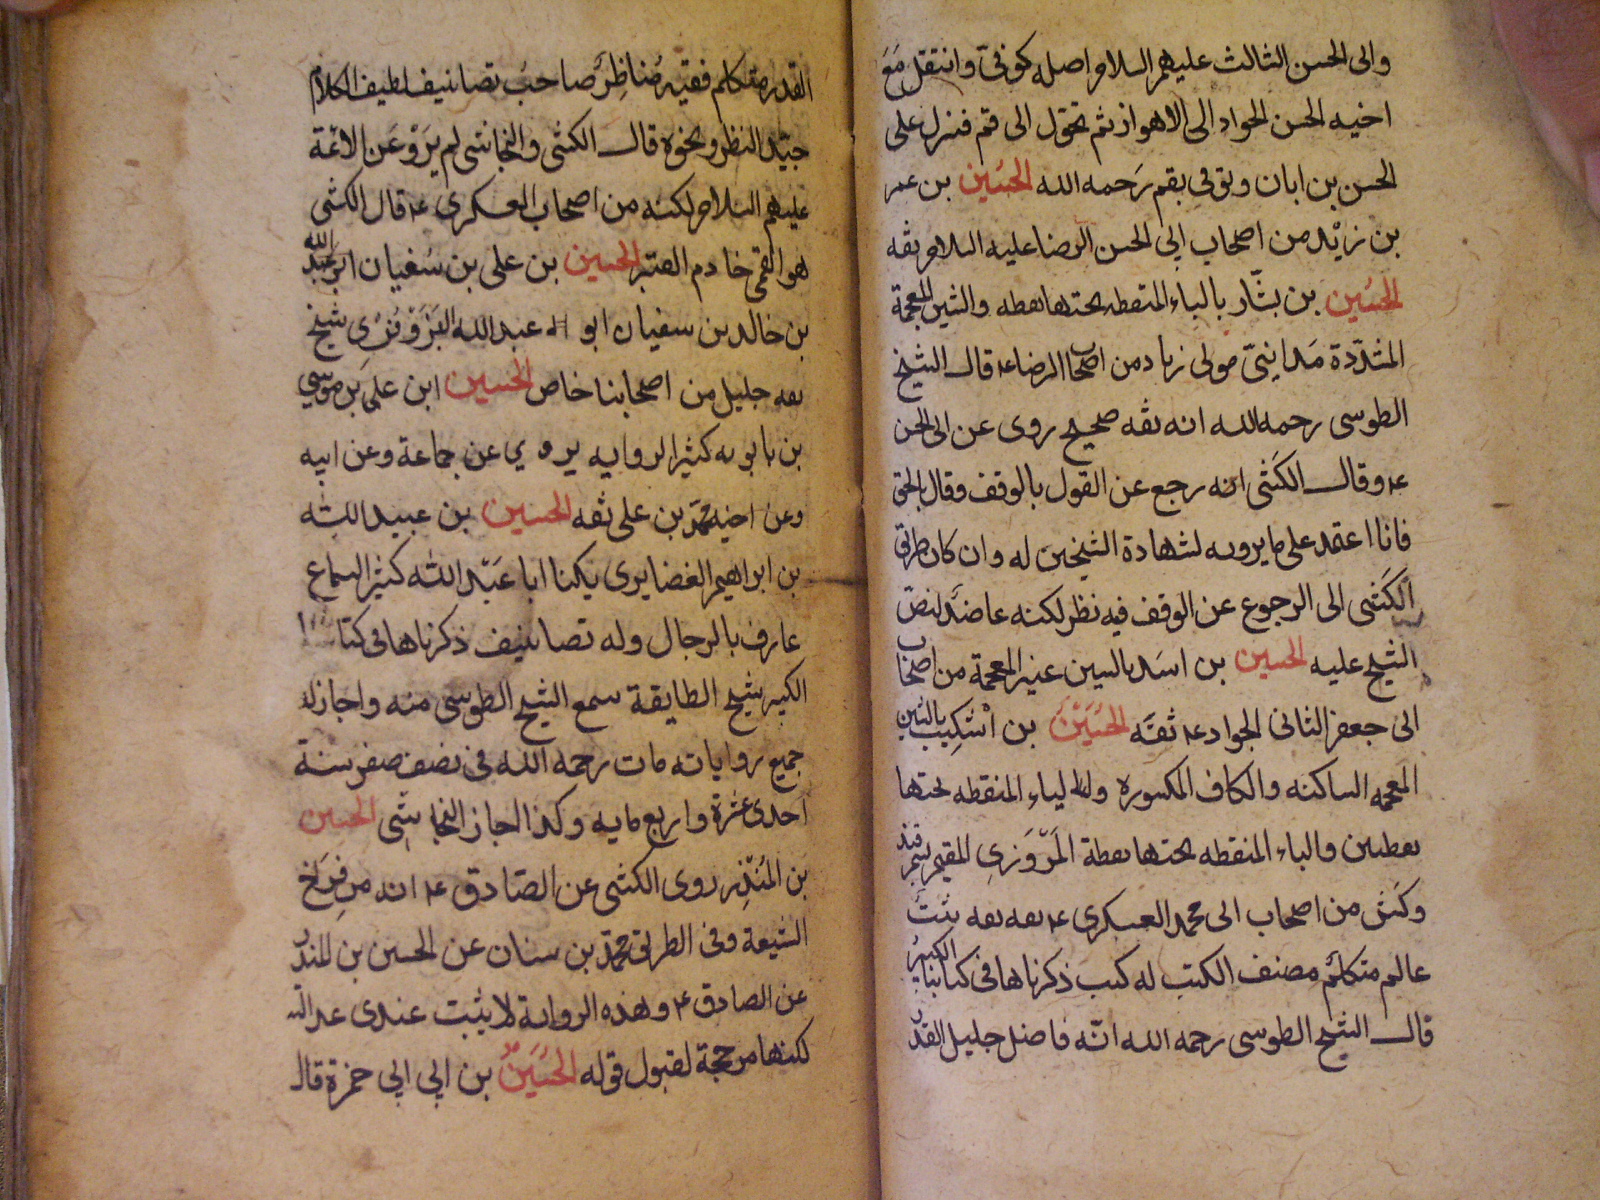 والى الحسن الثالث عليهم السلام اصله كوفى وانتقل مَعَ
اخيه الحسن الحواد الى الاهواز ثم تحوّل الى قم فنزل على
الحسن بن ابان وتوفى بقم رَحمه الله الحسَين بن عمر
بن زيْد من اصحاب ابى الحسن الرضا عليه السلام ثقه
الحسَين بن بشّار بالباء المنقطه تحتها نقطه والشين المعجمة
المشدّدة مَداينىّ مولى زياد من اصحاب الرضا ع قال الشيخ
الطوسى رحمه الله انه ثقه صحيح روى عن ابى الحسن
ع وقال الكَشى انه رجع عن القول بالوقف وقال بالحق
فانا اعتمد على ما يرويه لشهادة الشيخين له وان كان طريق
الكَشى الى الرجوع عن الوقف فيه نظر لكنه عاضدٌ لنصّ
الشيخ عليه الحسين بن اسَد بالسين غير المعجمة من اصحاب
ابى جعفر الثانى الجواد ع ثقَه الحُسَيْنُ بن اشْكِيب بالشين
المعجمه الساكنه والكاف المكسوره والياء المنقطه تحتها
نقطتين والباء المنقطه تحتها نقطة المَرْوَزىِ المقيم بسمرقند
وكَش من اصحاب ابى محمد العسكرى ع ثقه ثقه ثبتٌ
عالم متكلّم مصنف الكتب له كتب ذكرناها فى كتابنا الكبير
قال الشيخ الطوسى رحمه الله انّه فاضل جليل القدر
القدر متكلم فقيه مُناظِرٌ صاحبُ تصانيف لطيف الكلام
جيّد النظر ونحوه قال الكشى والنجاشى لم يَرْوِ عَن الائمة
عليهم السلام لكنه من اصحاب العسكرى ع قال الكشى
هو القمى خادم القبر الحسين بن على بن سُفيان ابو عبد الله
بن خالد بن سفيان ابو عبد الله البَزَوْفَرْى شيخ
ثقه جليل من اصحابنا خاص الحسين ابن على بن موسى
بن بابويه كثير الروايه يروي عن جماعة وعن ابيه
وعن اخيه محمّد بن على ثقه الحسين بن عبيد الله
بن ابراهيم الغضايرى يكنا ابا عَبْد الله كثير السماع
عارف بالرجال وله تصانيف ذكرناها فى كتابنا
الكبير شيخ الطايفة سمع الشيخ الطوسى منه واجازله
جميع رواياته مات رحمه الله فى نصف صفر سنة
احدى عشرة واربع مايه وكذا اجاز النجاشى الحسين
بن المُنْذِر روى الكشى عن الصّادق ع انه من فِرَاخ
الشيعة وفى الطريق محمّد بن سنان عن الحسين بن المنذر
عن الصادق ع وهذه الرواية لا يثبت عندى عدالته
لكنها مرجحة لقبول قوله الحُسَينُ بن ابى ابى حمزة قال